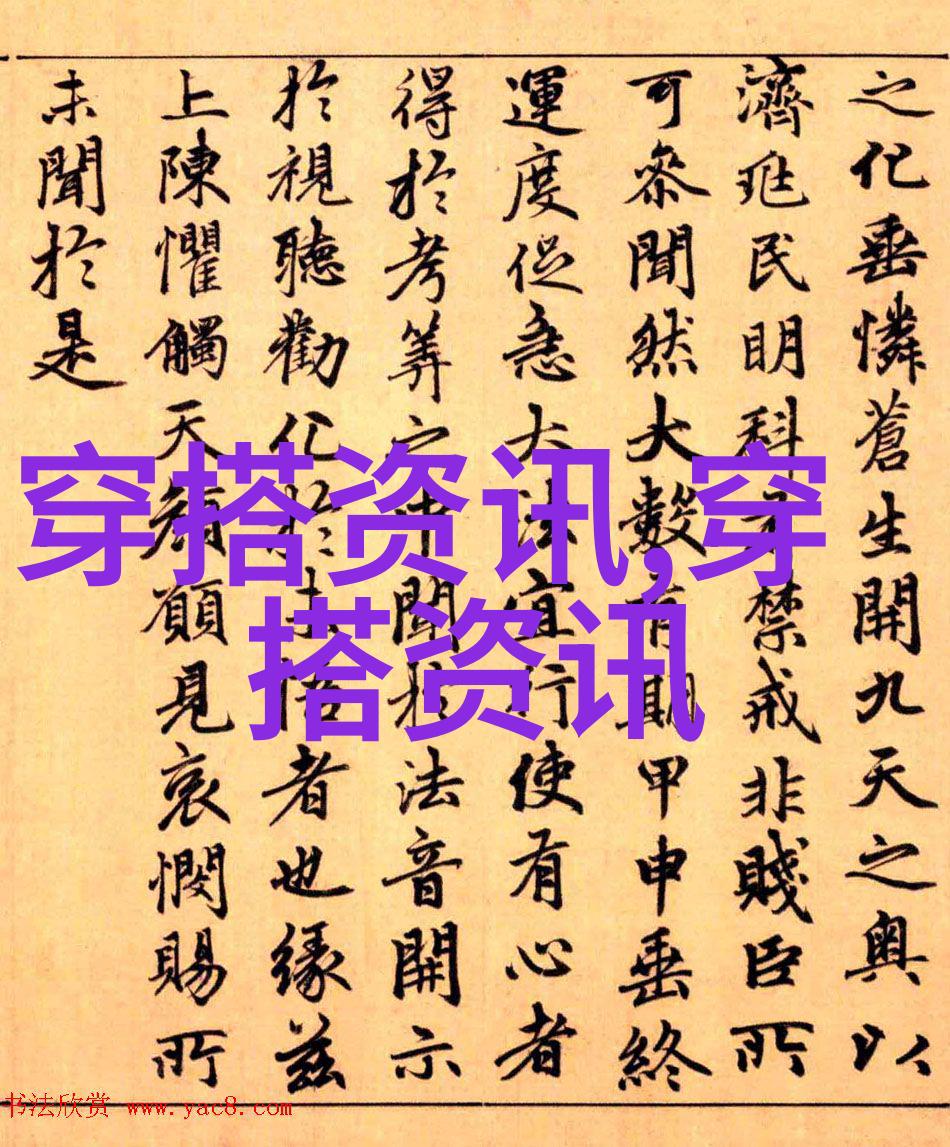 之化垂憐蒼生開九天之奧以
濟兆民明科禁戒非賤臣所
可參聞然大數有期甲申垂終
運度促急大法宜行使有心者
得於考筭之中聞於法音開示
於視聽勸化於未悟者也緣茲
上陳懼觸天顏願見哀憫賜所
未聞於是
穿搭资讯,穿
搭资讯
书法欣赏 www.yac8.com